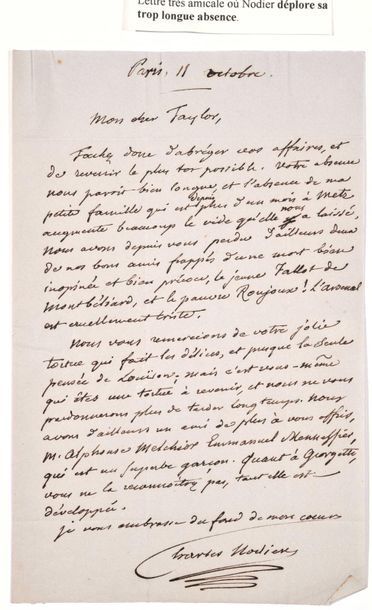 Lettre très amicale où Nodier déplore sa
trop longue absence.
Paris, 11 octobre.
Mon cher Taylor,
Tachez donc d'abréger vos affaires, et
de revenir le plus tot possible. Votre absence
nous paroit bien longue, et l'absence de ma
petite famille qui est depuis plus d'un mois à Metz
augmente beaucoup le vide qu'elle nous a laissé.
Nous avons depuis vous perdu d'ailleurs deux
de nos bons amis frappés d'une mort bien
inopinée et bien précoce, le jeune Fallot de
Montbéliard, et le pauvre Roujoux! L'arsenal
est cruellement triste.
Nous vous remercions de votre jolie
tortue qui fait les délices, et presque la seule
pensée de Louison, mais c'est vous-même
qui êtes une tortue à revenir, et nous ne vous
pardonnerons plus de tarder longtemps. Nous
avons d'ailleurs un ami de plus à vous offrir,
M. Alphonse Melchior Emmanuel Mennessier,
qui est un superbe garçon. Quant à Georgette,
vous ne la reconnoitrez pas, tant elle est
développée.
je vous embrasse du fond de mon coeur
Charles Nodier